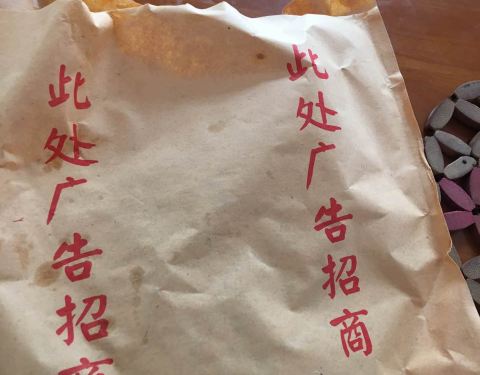 此处广告招商
此处广告招商